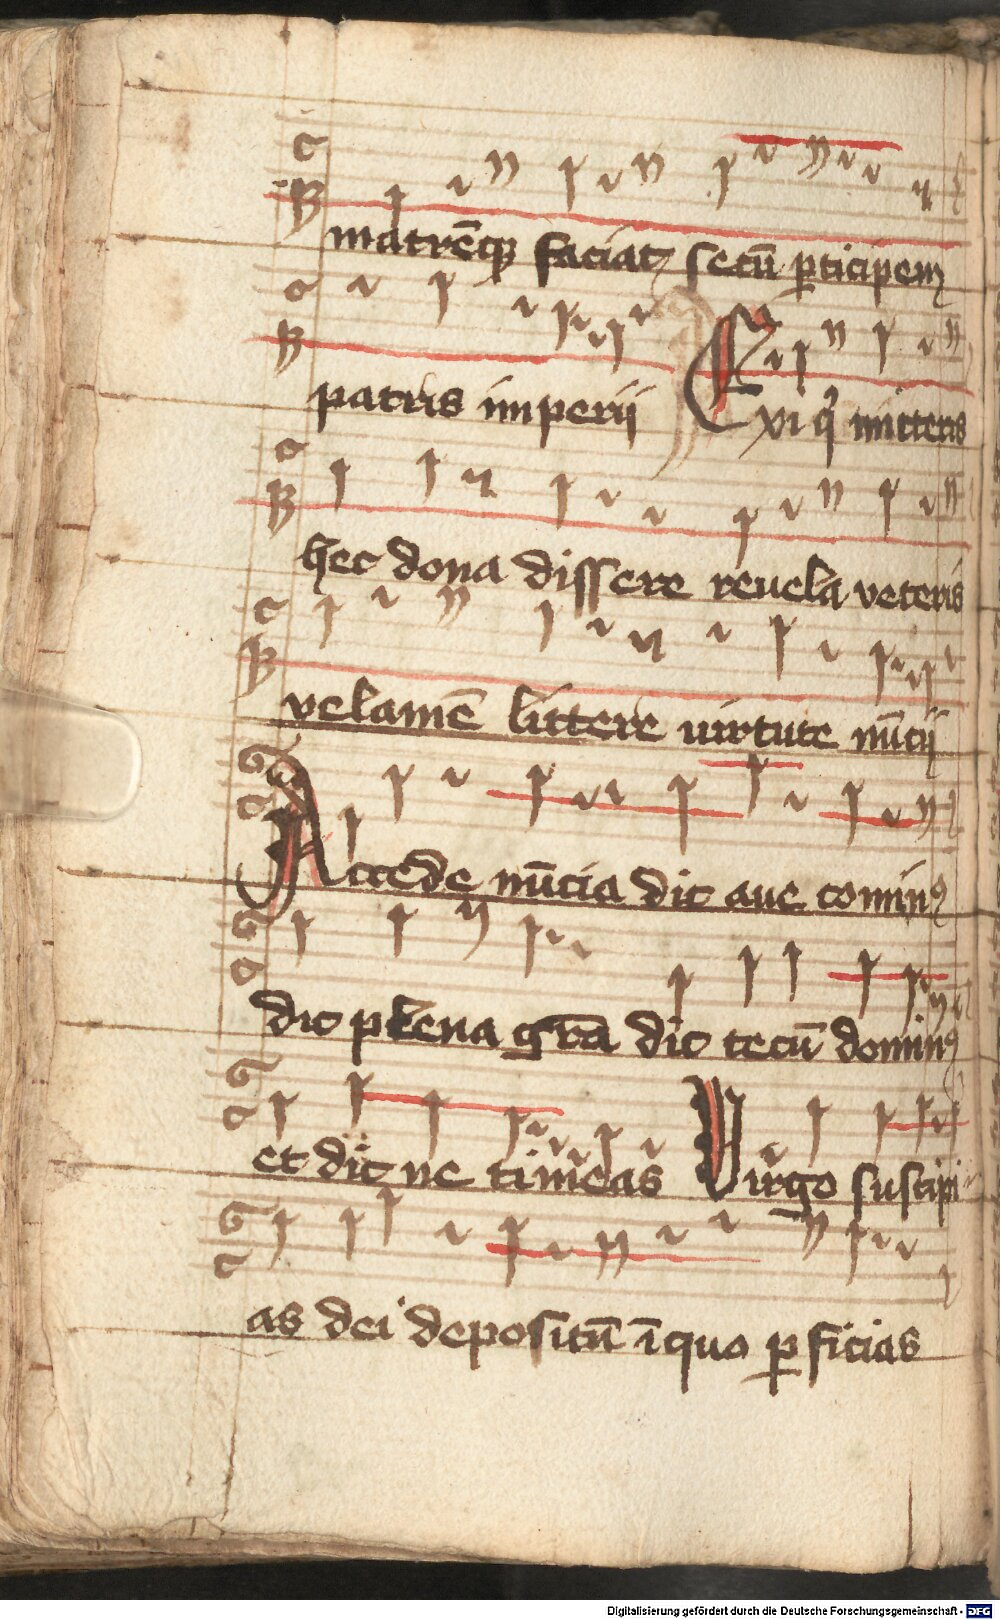 matrēq̄ faciat secū ꝑticipem
patris imperii Exi q̄ mitteris
hec dona dissere reuela veteris
velamē littere uirtute nūcij
Accede nūcia dic aue cominꝰ
dic plena gr̄a dic tecū dominꝰ
et dic ne timeas Virgo suscipi
as dei depositū ī quo ꝑficias
Digitalisierung gefördert durch die Deutsche Forschungsgemeinschaft - DFG